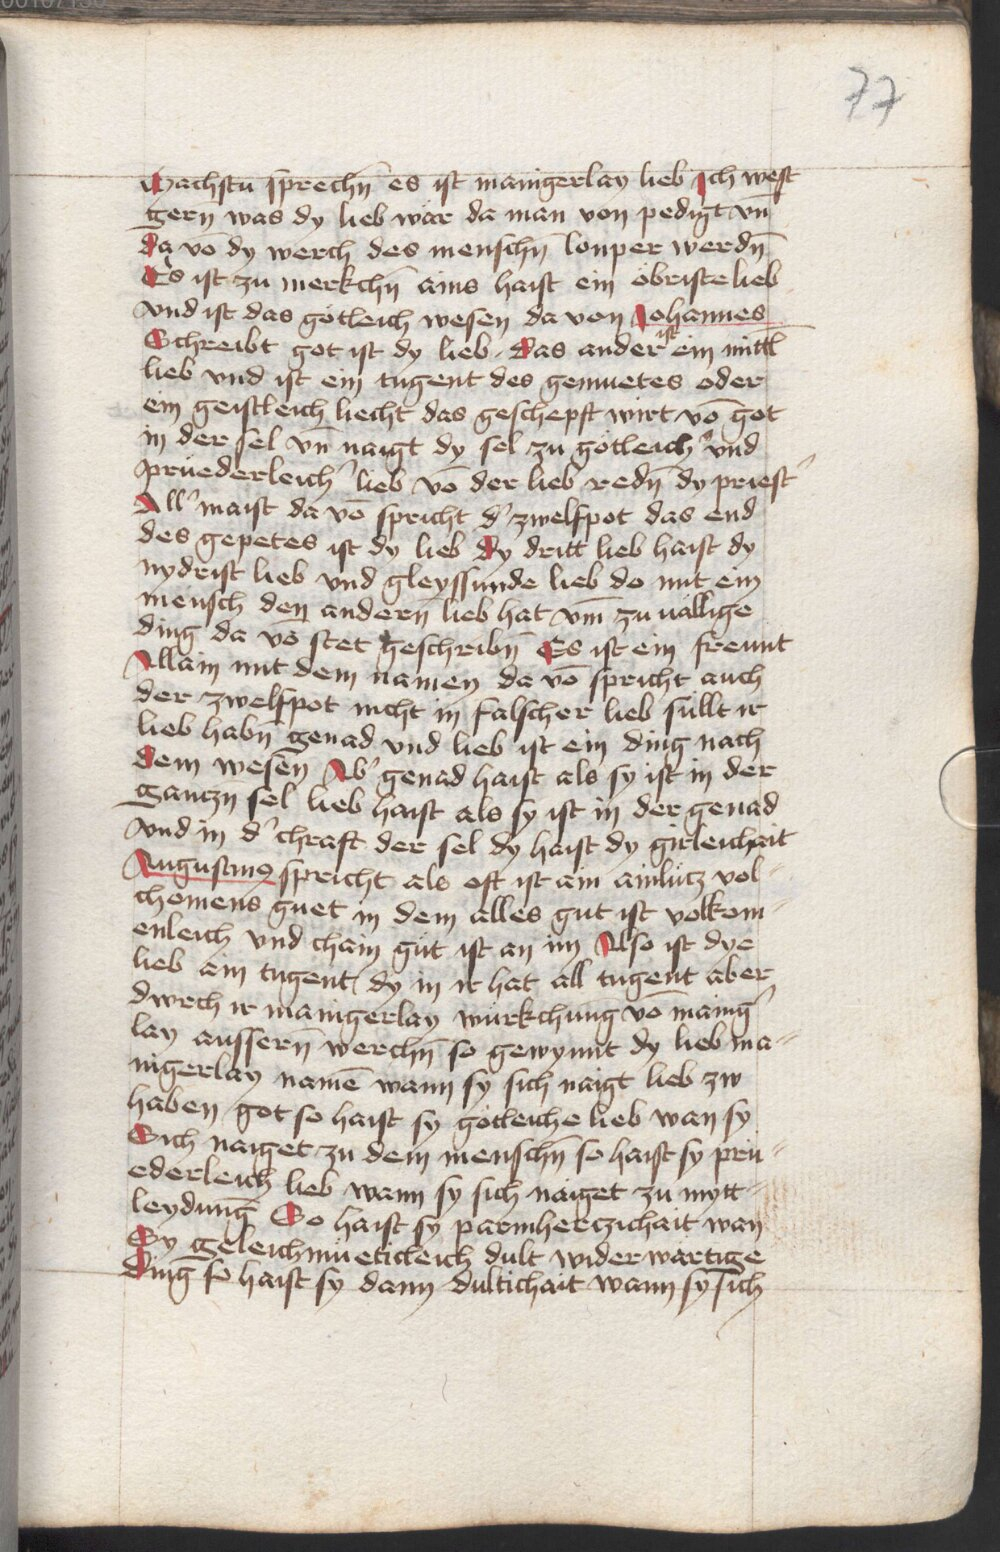 77
Machstu sprechn̄ es ist manigerlay lieb Ich west
gern was dy lieb wär da man von pedigt vn̄
da vō dy werch des menschn̄ lonper werdn̄
Es ist zu merkchn̄ ains haist ein öbriste lieb
vnd ist das götleich wesen da von Johannes
Schreibt got ist dy lieb. Das ander ist ein mittl
lieb vnd ist ein tugent des gemuetes oder
ein geistleich liecht das geschepft wirt vō got
in der sel vn̄ naigt dy sel zu götleich' vnd
prüederleich' lieb vō der lieb redn̄ dy priest'
All' maist da vō spricht d' zwelfpot das end
des gepetes ist dy lieb Dy dritt lieb haist dy
nydrist lieb vnd gleyssunde lieb do mit ein
mensch den andern̄ lieb hat vm̄ zuuällige
ding da vō stet geschribn̄ Es ist ein freunt
Allain mit dem namen da vō spricht auch
der zwelfpot nicht in falscher lieb süllt ir
lieb habn̄ genad vnd lieb ist ein ding nach
dem wesen̄ Ab' genad haist als sy ist in der
gantzn sel lieb haist als sy ist in der genad
vnd in d' chraft der sel dy haist dy girleichait
Augustinꝰ spricht als oft ist ain ainlücz vol-
chomens guet in dem alles gut ist volkom-
enleich vnd chain güt ist an im Also ist dye
lieb ain tugent dy in ir hat all tugent aber
dwrch ir manigerlay würkchung vō manig'
lay aussern̄ werchn̄ so gewynnt dy lieb ma-
nigerlay namē wann sy sich naigt lieb zw
haben got so haist sy götleiche lieb wan sy
Sich naiget zu dem menschn̄ so haist sy prü-
ederleich lieb wann sy sich naiget zu mytt-
leydung So haist sy parmherczichait wan
Sy geleichmüeticleich dult widerwärtige
Ding so haist sy dann dultichait wann sy sich